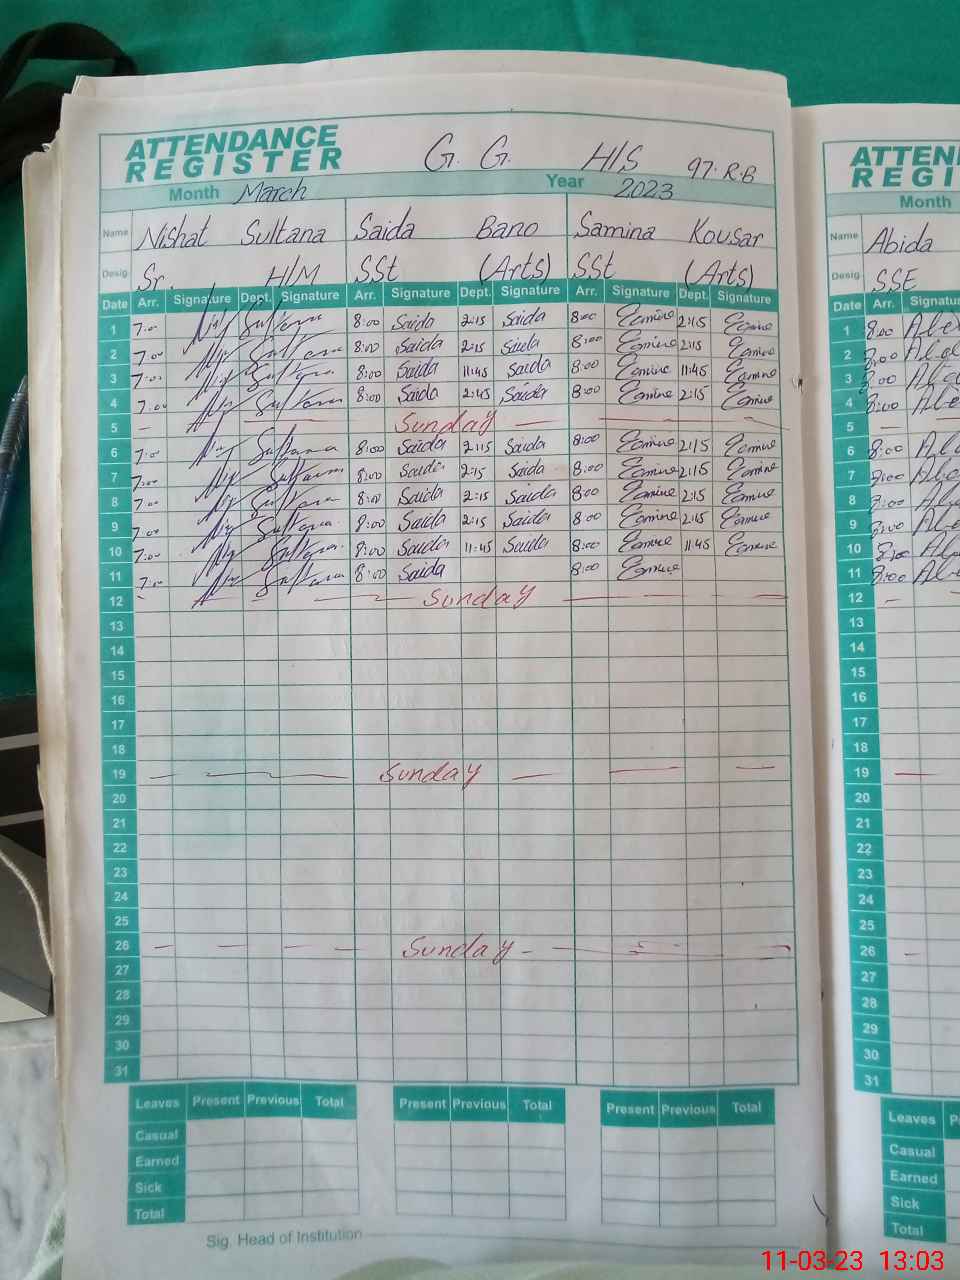 ATTENDANCE REGISTER G. G. H/S 97.R.B
Month March Year 2023
Name Nishat Sultana Saida Bano Samina Kousar
Desig. Sr. H/M SSt (Arts) SSt (Arts)
Date Arr. Signature Dept. Signature Arr. Signature Dept. Signature Arr. Signature Dept. Signature
1 7:00 Sultana 8:00 Saida 2:15 Saida 8:00 2:15
2 7:00 Sultana 8:00 Saida 2:15 Saida 8:00 2:15
3 7:00 Sultana 8:00 Saida 11:45 Saida 8:00 11:45
4 7:00 Sultana 8:00 Saida 2:45 Saida 8:00 2:15
5 Sunday
6 7:00 Sultana 8:00 Saida 2:15 Saida 8:00 2:15
7 7:00 Sultana 8:00 Saida 2:15 Saida 8:00 2:15
8 7:00 Sultana 8:00 Saida 2:15 Saida 8:00 2:15
9 7:00 Sultana 8:00 Saida 2:15 Saida 8:00 2:15
10 7:00 Sultana 8:00 Saida 11:45 Saida 8:00 11:45
11 7:00 Sultana 8:00 Saida 8:00
12 Sunday
13
14
15
16
17
18
19 Sunday
20
21
22
23
24
25
26 Sunday
27
28
29
30
31
Leaves Present Previous Total Present Previous Total Present Previous Total
Casual
Earned
Sick
Total
Sig. Head of Institution
REGI
Month
Name Abida
Desig. SSE
Date Arr.
1 8:00
2 8:00
3 8:00
4 8:00
5
6 8:00
7 8:00
8 8:00
9 8:00
10 8:00
11 8:00
12
13
14
15
16
17
18
19
20
21
22
23
24
25
26
27
28
29
30
31
Leaves
Casual
Earned
Sick
Total
11-03-23 13:03